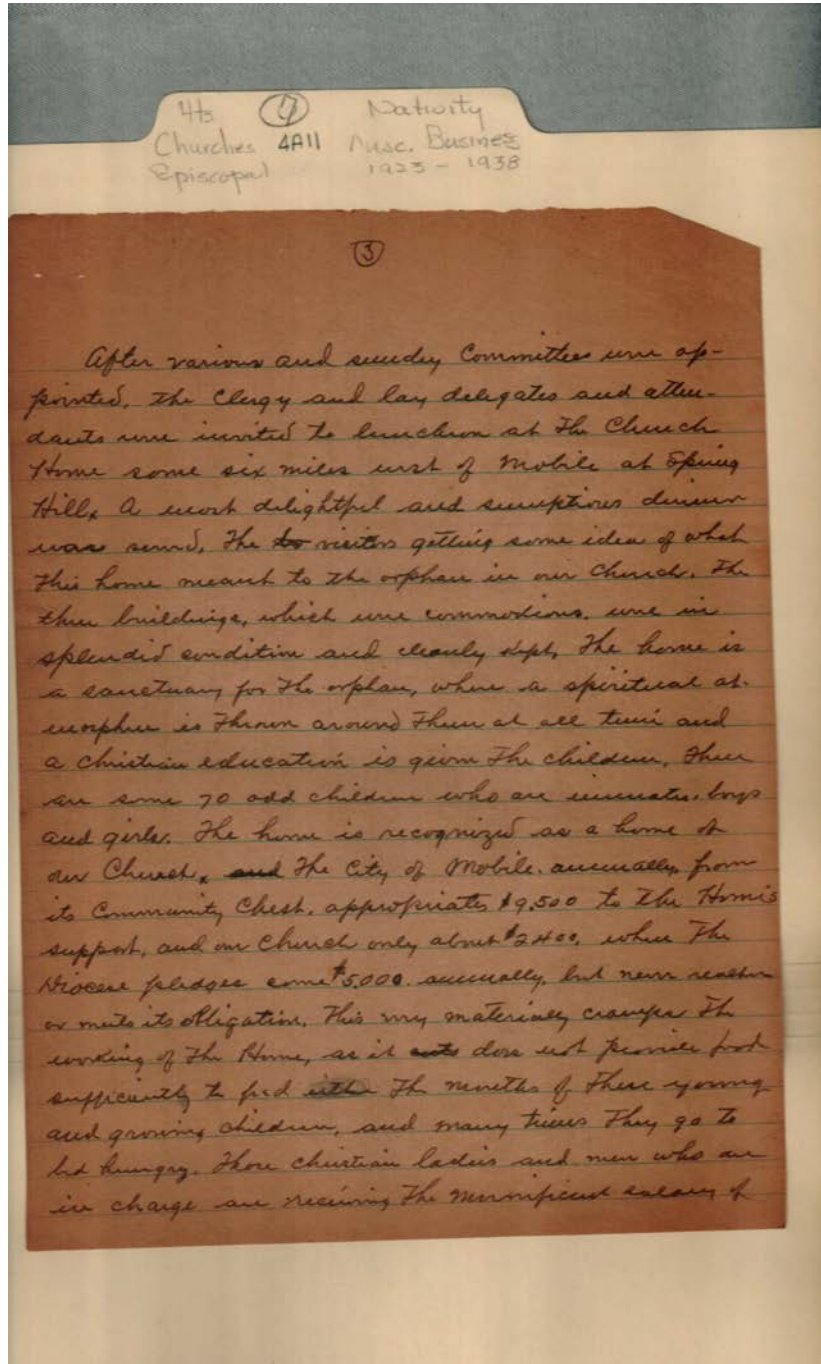 Hts (7) Nativity
Churches 4A11 Misc. Business
Episcopal 1923 - 1938
(3)
After various and sundry Committees were ap-
pointed, the Clergy and lay delegates and atten-
dants were invited to luncheon at the Church
Home some six miles west of Mobile at Spring
Hill. A most delightful and sumptious dinner
was served, the visitors getting some idea of what
this home meant to the orphan in our Church. The
three buildings, which were commodious, were in
splendid condition and cleanly kept. The home is
a sanctuary for the orphan, where a spiritual at-
mosphere is thrown around them at all times and
a christian education is given the children. There
are some 70 odd children who are inmates, boys
and girls. The home is recognized as a home of
our Church, and The City of Mobile annually, from
its Community Chest, appropriates $9,500 to the Home's
support, and our Church only about $2400, when the
Diocese pledges some $5,000 annually, but never reaches
or meets its obligation. This very materially cramps the
working of the Home, as it does not provide food
sufficiently to feed the mouths of these young
and growing children, and many times they go to
bed hungry. Those christian ladies and men who are
in charge are receiving the munificient salary of